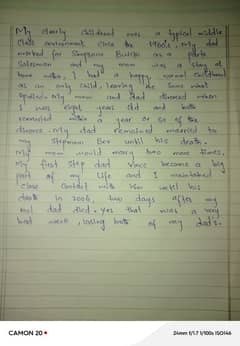 My early childhood was a typical middle
class environment, close the 1960's. My dad
worked for Simpsons Builds as a parts
Salesman and my mom was a stay at
home mother. I had a happy, normal childhood
as an only child, leaving me some what
spoiled. My mom and dad divorced when
I was eight years old and both
remarried within a year or so of the
divorce. My dad remained married to
my stepmom Bev until his death.
My mom would marry two more times.
My first Step dad Vince became a big
part of my life and I maintained
close contact with him until his
death in 2006, two days after my
real dad died. Yes that was a very
bad week, losing both of my dad's.
CAMON 20
24mm f/1.7 1/100s ISO146